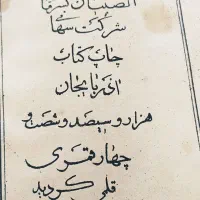 الصبیان
شرکت سهامی
چاپ کتاب
اذربایجان
هزار و سیصد و شصت و
چهار قمری
قلمی گردید